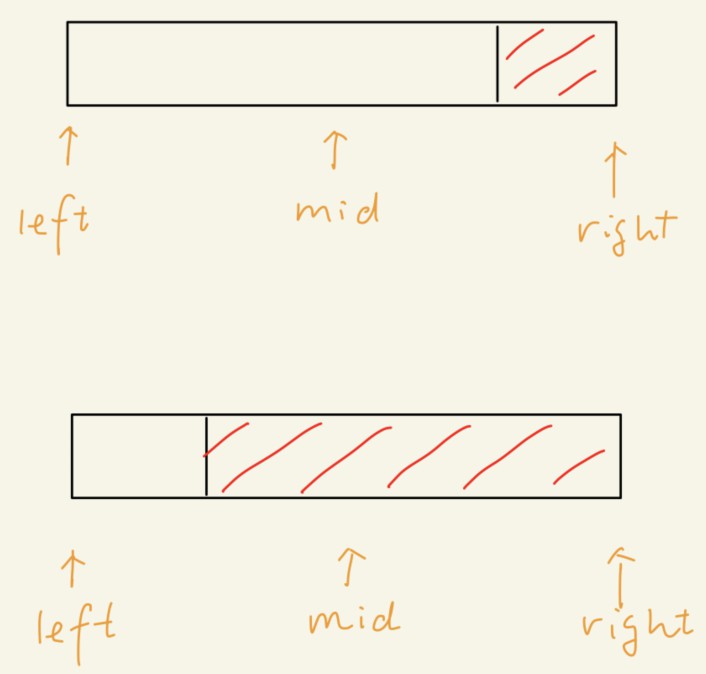 left
mid
right
left
mid
right